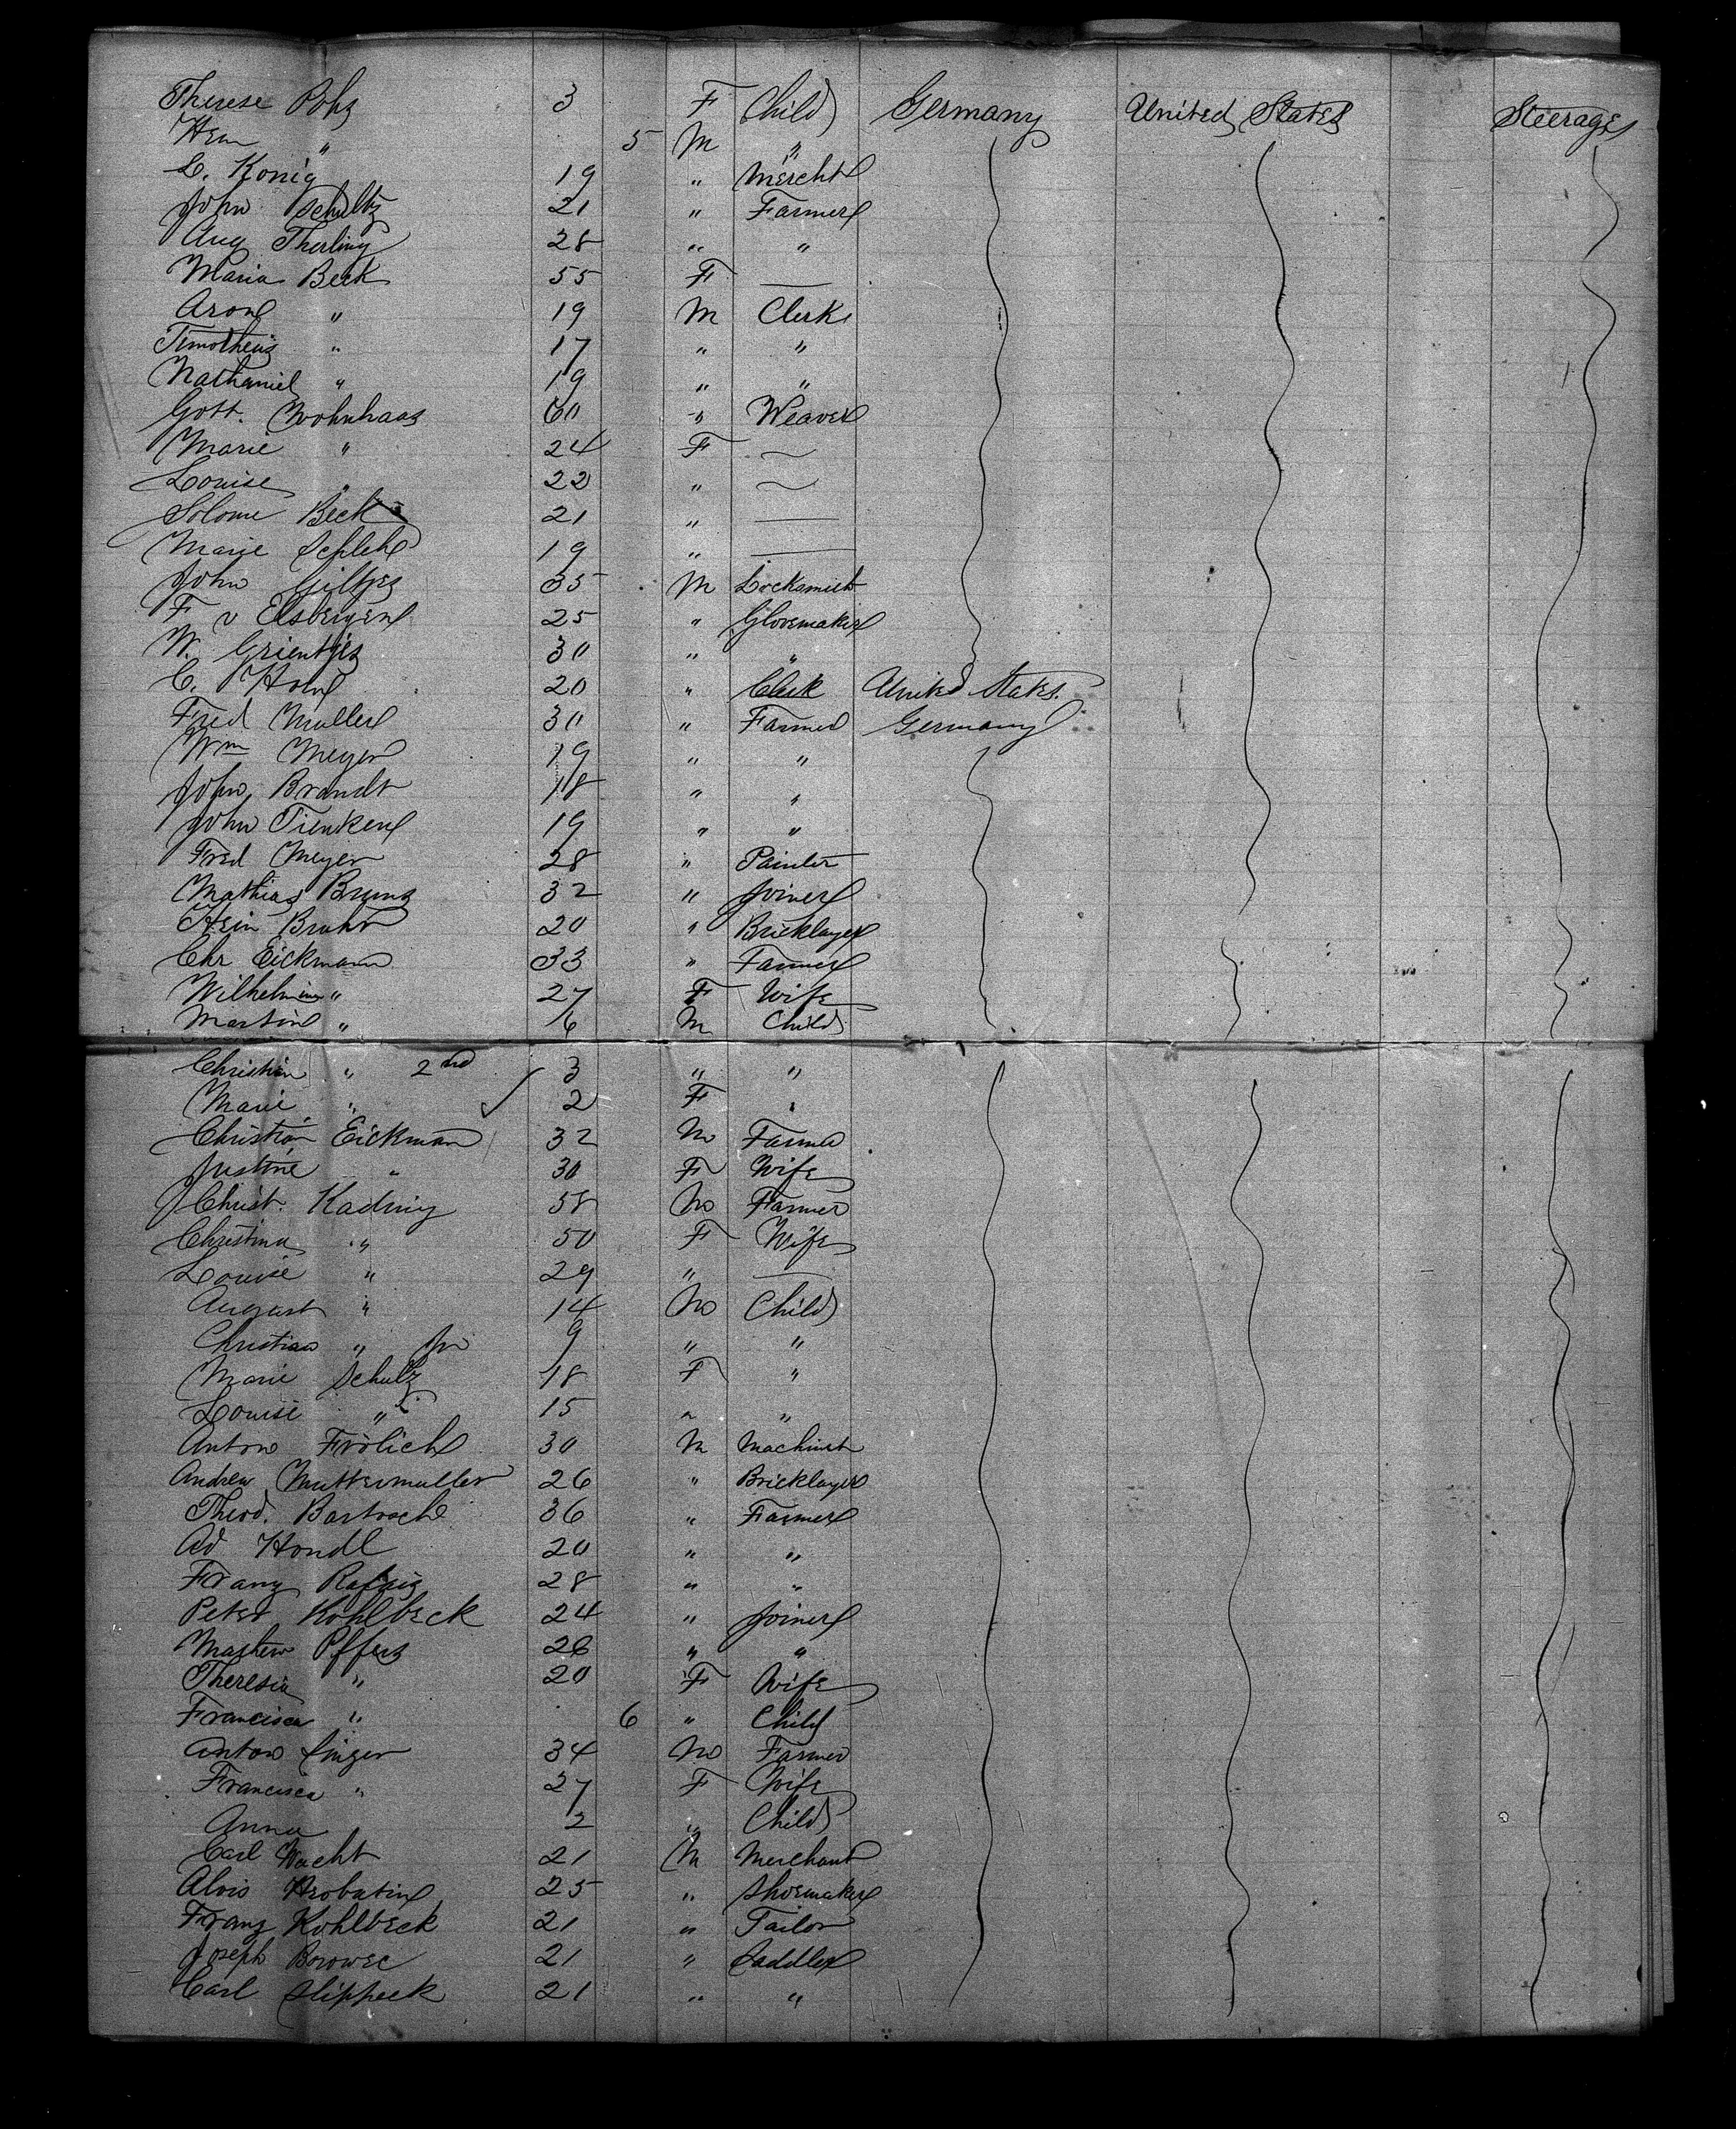 Therese Pohs 3 F Child Germany United States Steerage
Hein " 5 M "
C. Konig 19 " Mercht
John Schultz 21 " Farmer
Aug Therling 28 " "
Maria Beck 55 F —
Aron " 19 M Clerk
Timotheus " 17 " "
Nathaniel " 19 " "
Gott. Wohnhaas 60 " Weaver
Marie " 24 F —
Louise " 22 " —
Solome Beck 21 " —
Marie Schlehl 19 " —
John 35 M Locksmith
F v Elsbergen 25 " Glovemaker
W. Grientjes 30 " "
C. Horn 20 " Clerk United States
Fred Muller 30 " Farmer Germany
Wm Meyer 19 " "
John Brandt 18 " "
John Tienken 19 " "
Fred Meyer 28 " Painter
Mathias Bruns 32 " Joiner
Hein Bruhn 20 " Bricklayer
Chr Eickmann 33 " Farmer
Wilhelmine " 27 F Wife
Martin " 6 M Child
Christian " 2nd 3 " "
Marie " 2 F "
Christian Eickman 32 M Farmer
Justine " 30 F Wife
Christ. Kading 58 M Farmer
Christina " 50 F Wife
Louise " 29 " —
August " 14 M Child
Christian " Jn 9 " "
Marie Schulz 18 F "
Louise " 15 " "
Anton Frölich 30 M Machinist
Andrew Muttermuller 26 " Bricklayer
Theod. Bartosch 36 " Farmer
Ad Hondl 20 " "
Franz 28 " "
Peter Kohlbeck 24 " Joiner
Mathew Pffers 26 " "
Theresia " 20 F Wife
Francisca " 6 " Child
Anton Singer 34 M Farmer
Francisca " 27 F Wife
Anna 2 " Child
Carl Wacht 21 M Merchant
Alois Hrobatin 25 " Shoemaker
Franz Kohlbeck 21 " Tailor
Joseph Borowec 21 " Saddler
Carl Slippeck 21 " "